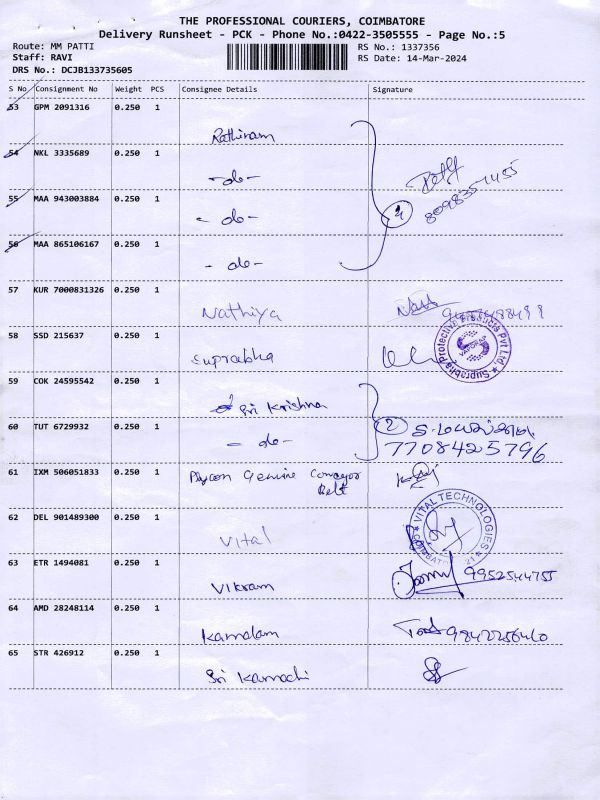 THE PROFESSIONAL COURIERS, COIMBATORE
Delivery Runsheet - PCK - Phone No.:0422-3505555 - Page No.:5
Route: MM PATTI
Staff: RAVI
DRS No.: DCJB133735605
RS No.: 1337356
RS Date: 14-Mar-2024
S No Consignment No Weight PCS Consignee Details Signature
53 GPM 2091316 0.250 1
Rathinam
54 NKL 3335689 0.250 1
- do -
55 MAA 943003884 0.250 1
- do -
4
56 MAA 865106167 0.250 1
- do -
57 KUR 7000831326 0.250 1
Nathiya
58 SSD 215637 0.250 1
Suprabha
Suprabha Protective Products Pvt Ltd.
59 COK 24595542 0.250 1
Sri Krishna
60 TUT 6729932 0.250 1
- do -
2
7708425796
61 IXM 506051833 0.250 1
Genuine Conveyor
Belt
62 DEL 901489300 0.250 1
Vital
VITAL TECHNOLOGIES
63 ETR 1494081 0.250 1
Vikram 9952544755
64 AMD 28248114 0.250 1
Kamalam 9842256460
65 STR 426912 0.250 1
Sri Kamachi